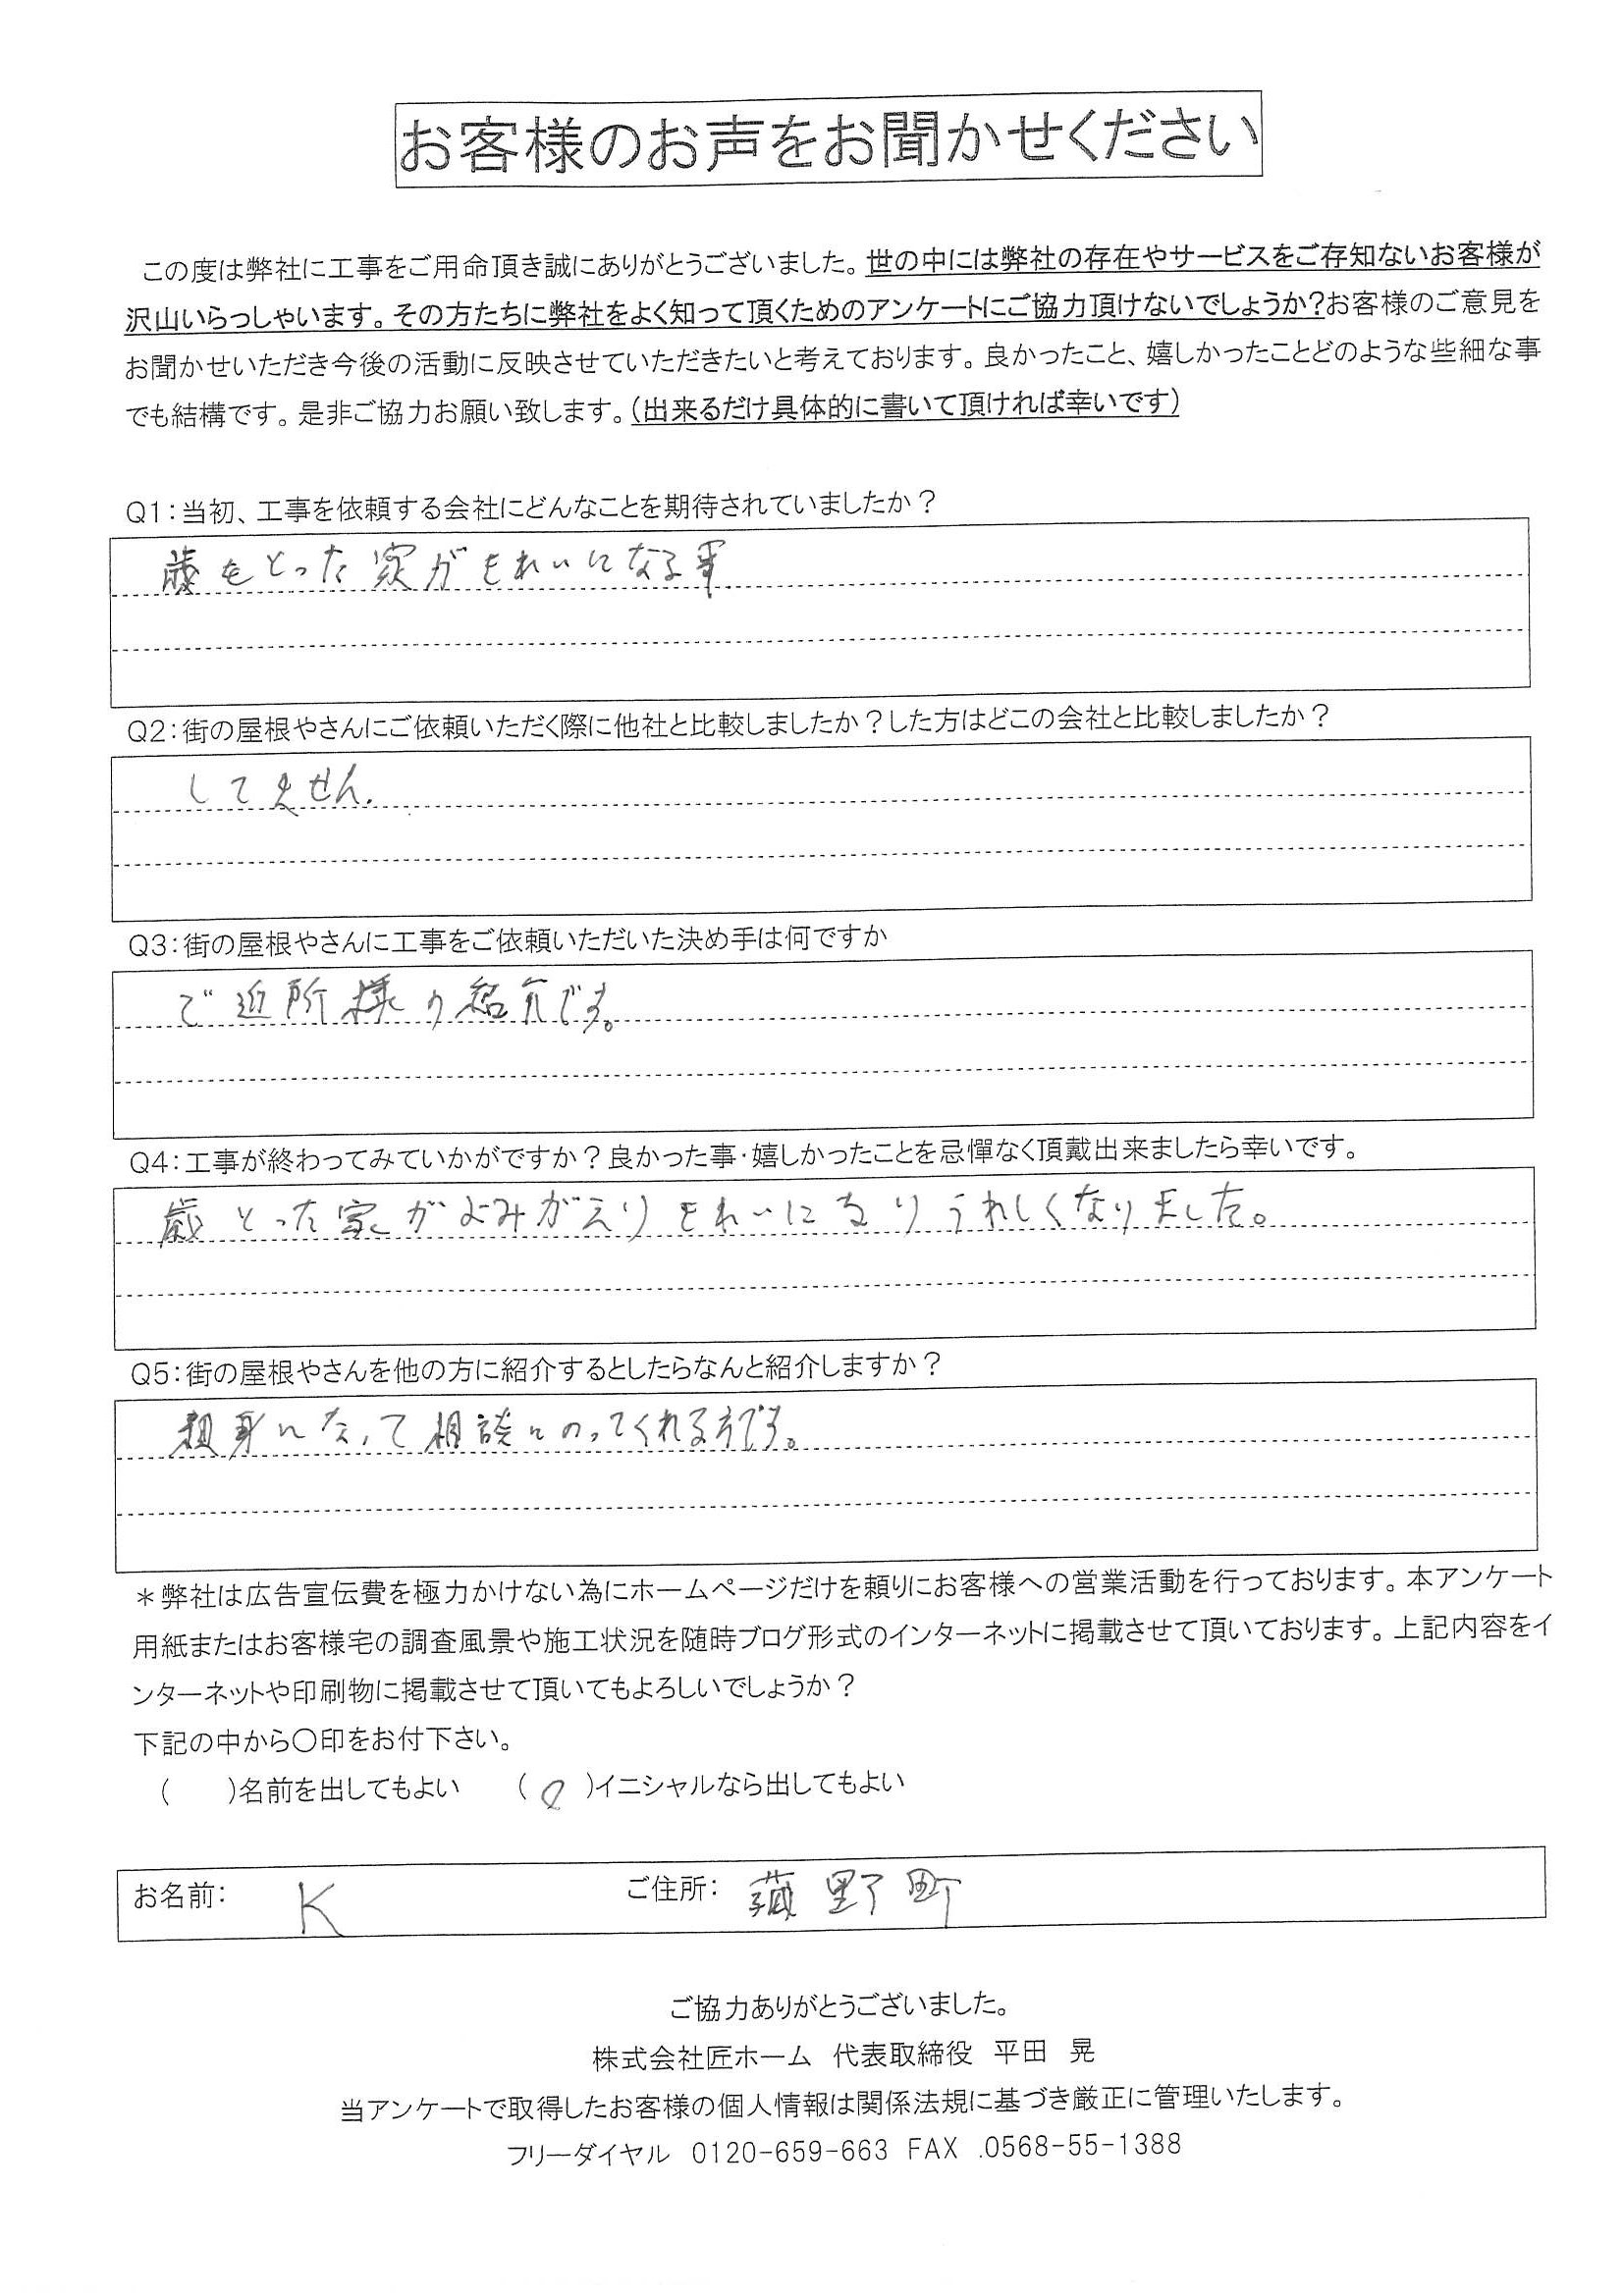 お客様のお声をお聞かせください
この度は弊社に工事をご用命頂き誠にありがとうございました。世の中には弊社の存在やサービスをご存知ないお客様が
沢山いらっしゃいます。その方たちに弊社をよく知って頂くためのアンケートにご協力頂けないでしょうか?お客様のご意見を
お聞かせいただき今後の活動に反映させていただきたいと考えております。良かったこと、嬉しかったことどのような些細な事
でも結構です。是非ご協力お願い致します。(出来るだけ具体的に書いて頂ければ幸いです)
Q1:当初、工事を依頼する会社にどんなことを期待されていましたか?
歳をとった家がきれいになる事
Q2:街の屋根やさんにご依頼いただく際に他社と比較しましたか?した方はどこの会社と比較しましたか?
してません.
Q3:街の屋根やさんに工事をご依頼いただいた決め手は何ですか
ご近所様の紹介です。
Q4:工事が終わってみていかがですか?良かった事・嬉しかったことを忌憚なく頂戴出来ましたら幸いです。
歳とった家がよみがえりきれいになりうれしくなりました。
Q5:街の屋根やさんを他の方に紹介するとしたらなんと紹介しますか?
親身になって相談にのってくれる方です。
*弊社は広告宣伝費を極力かけない為にホームページだけを頼りにお客様への営業活動を行っております。本アンケート
用紙またはお客様宅の調査風景や施工状況を随時ブログ形式のインターネットに掲載させて頂いております。上記内容をイ
ンターネットや印刷物に掲載させて頂いてもよろしいでしょうか?
下記の中から○印をお付下さい。
(　　)名前を出してもよい　　(○)イニシャルなら出してもよい
お名前: K　ご住所: 野町
ご協力ありがとうございました。
株式会社匠ホーム　代表取締役　平田　晃
当アンケートで取得したお客様の個人情報は関係法規に基づき厳正に管理いたします。
フリーダイヤル　0120-659-663 FAX .0568-55-1388